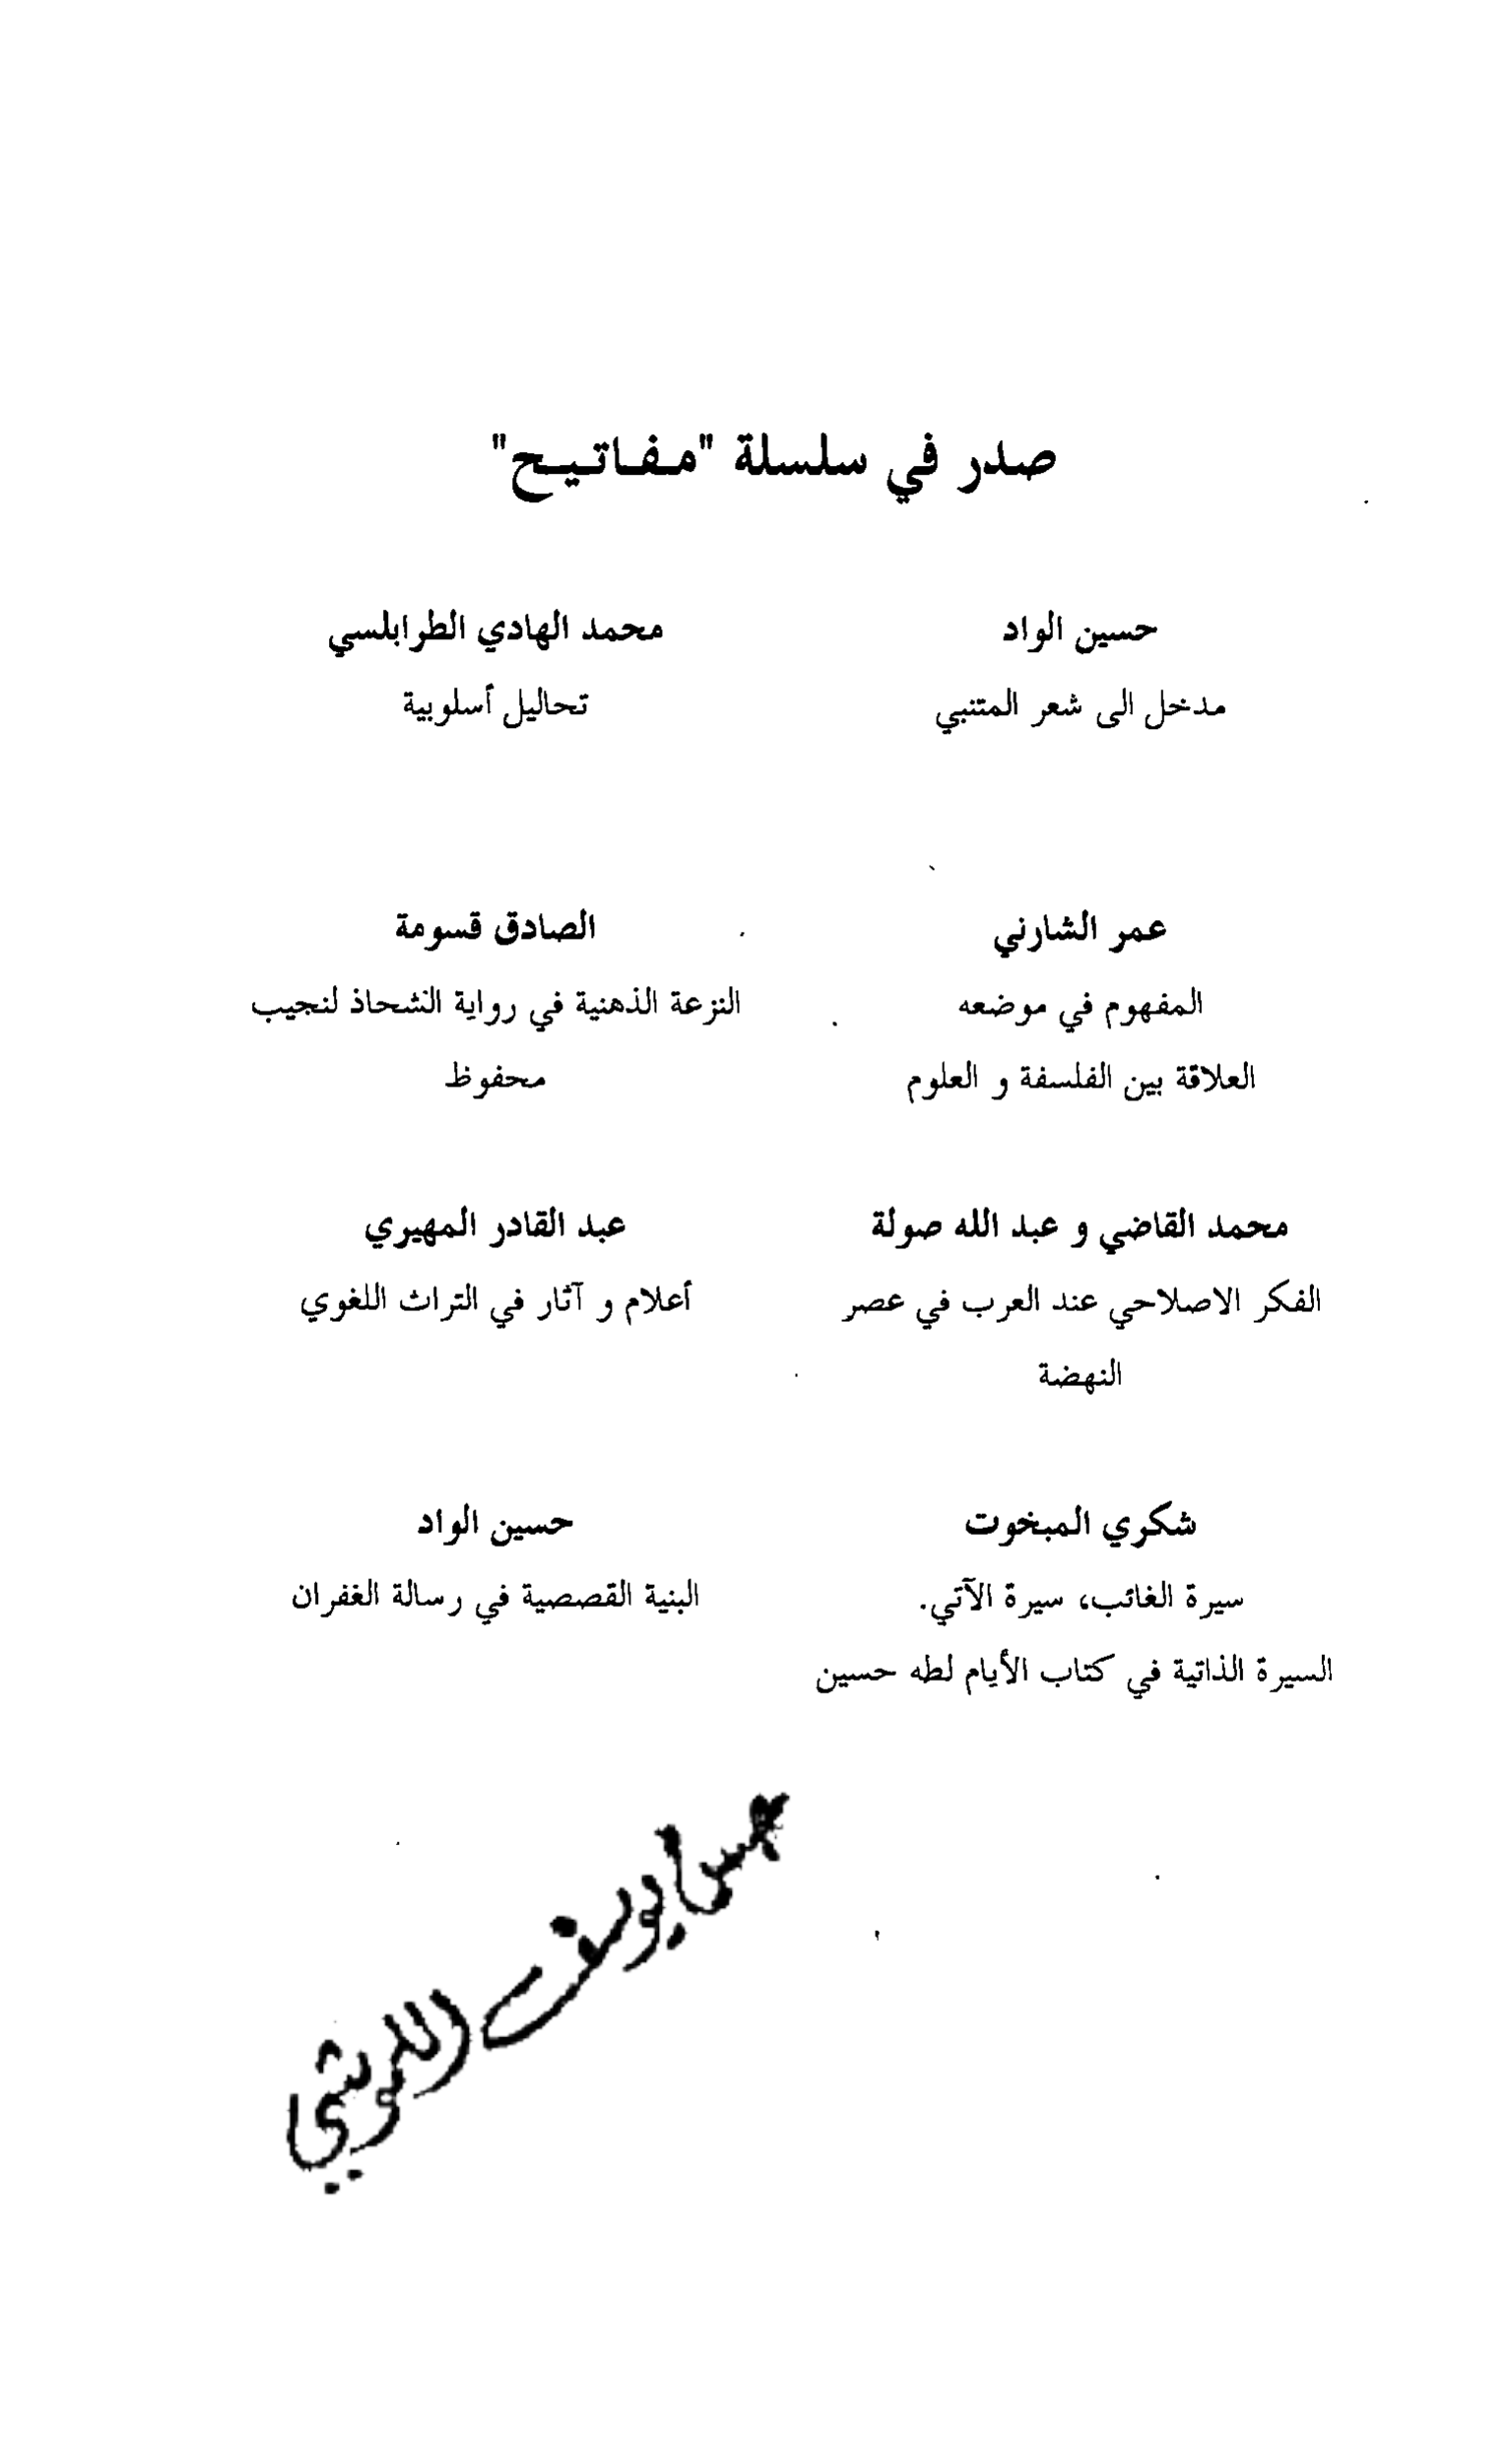 صدر في سلسلة "مفاتيح"
حسين الواد
مدخل الى شعر المتنبي
محمد الهادي الطرابلسي
تحاليل أسلوبية
عمر الشارني
المفهوم في موضعه
العلاقة بين الفلسفة و العلوم
الصادق قسومة
النزعة الذهنية في رواية الشحاذ لنجيب
محفوظ
محمد القاضي و عبد الله صولة
الفكر الاصلاحي عند العرب في عصر
النهضة
عبد القادر المهيري
أعلام و آثار في التراث اللغوي
شكري المبخوت
سيرة الغائب، سيرة الآتي.
السيرة الذاتية في كتاب الأيام لطه حسين
حسين الواد
البنية القصصية في رسالة الغفران